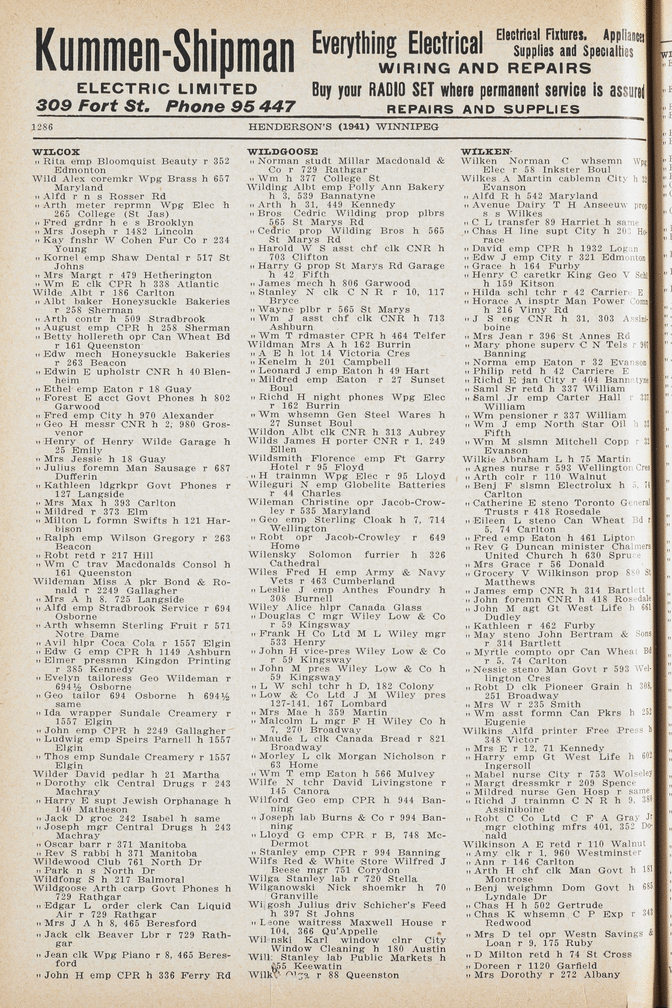 Kummen-Shipman
ELECTRIC LIMITED
309 Fort St. Phone 95 447
Everything Electrical
Electrical Fixtures. Appliances
Supplies and Specialties
WIRING AND REPAIRS
Buy your RADIO SET where permanent service is assured
REPAIRS AND SUPPLIES
1286
HENDERSON'S (1941) WINNIPEG
WILCOX
" Rita emp Bloomquist Beauty r 352
Edmonton
Wild Alex coremkr Wpg Brass h 657
Maryland
" Alfd r n s Rosser Rd
" Arth meter reprmn Wpg Elec h
265 College (St Jas)
" Fred grdnr h e s Brooklyn
" Mrs Joseph r 1482 Lincoln
" Kay fnshr W Cohen Fur Co r 234
Young
" Kornel emp Shaw Dental r 517 St
Johns
" Mrs Margt r 479 Hetherington
" Wm E clk CPR h 338 Atlantic
Wilde Albt r 186 Carlton
" Albt baker Honeysuckle Bakeries
r 258 Sherman
" Arth contr h 509 Stradbrook
" August emp CPR h 258 Sherman
" Betty hollereth opr Can Wheat Bd
r 161 Queenston
" Edw mech Honeysuckle Bakeries
r 263 Beacon
" Edwin E upholstr CNR h 40 Blen-
heim
" Ethel emp Eaton r 18 Guay
" Forest E acct Govt Phones h 802
Garwood
" Fred emp City h 970 Alexander
" Geo H messr CNR h 2, 980 Gros-
venor
" Henry of Henry Wilde Garage h
25 Emily
" Mrs Jessie h 18 Guay
" Julius foremn Man Sausage r 687
Dufferin
" Kathleen ldgrkpr Govt Phones r
127 Langside
" Mrs Max h 393 Carlton
" Mildred r 373 Elm
" Milton L formn Swifts h 121 Har-
bison
" Ralph emp Wilson Gregory r 263
Beacon
" Robt retd r 217 Hill
" Wm C trav Macdonalds Consol h
161 Queenston
Wildeman Miss A pkr Bond & Ro-
nald r 2249 Gallagher
" Mrs A h 8, 725 Langside
" Alfd emp Stradbrook Service r 694
Osborne
" Arth whsemn Sterling Fruit r 571
Notre Dame
" Avil hlpr Coca Cola r 1557 Elgin
" Edw G emp CPR h 1149 Ashburn
" Elmer pressmn Kingdon Printing
r 385 Kennedy
" Evelyn tailoress Geo Wildeman r
694½ Osborne
" Geo tailor 694 Osborne h 694½
same
" Ida wrapper Sundale Creamery r
1557 Elgin
" John emp CPR h 2249 Gallagher
" Ludwig emp Speirs Parnell h 1557
Elgin
" Thos emp Sundale Creamery r 1557
Elgin
Wilder David pedlar h 21 Martha
" Dorothy clk Central Drugs r 243
Machray
" Harry E supt Jewish Orphanage h
140 Matheson
" Jack D groc 242 Isabel h same
" Joseph mgr Central Drugs h 243
Machray
" Oscar barr r 371 Manitoba
" Rev S rabbi h 371 Manitoba
Wildewood Club 761 North Dr
" Park n s North Dr
Wildfong S h 217 Balmoral
Wildgoose Arth carp Govt Phones h
729 Rathgar
" Edgar L order clerk Can Liquid
Air r 729 Rathgar
" Mrs J A h 8, 465 Beresford
" Jack clk Beaver Lbr r 729 Rath-
gar
" Jean clk Wpg Piano r 8, 465 Beres-
ford
" John H emp CPR h 336 Ferry Rd
WILDGOOSE
" Norman studt Millar Macdonald &
Co r 729 Rathgar
" Wm h 377 College St
Wilding Albt emp Polly Ann Bakery
h 3, 539 Bannatyne
" Arth h 31, 449 Kennedy
" Bros Cedric Wilding prop plbrs
565 St Marys Rd
" Cedric prop Wilding Bros h 565
St Marys Rd
" Harold W S asst chf clk CNR h
703 Clifton
" Harry G prop St Marys Rd Garage
h 42 Fifth
" James mech h 806 Garwood
" Stanley N clk C N R r 10, 117
Bryce
" Wayne plbr r 565 St Marys
" Wm J asst chf clk CNR h 713
Ashburn
" Wm T rdmaster CPR h 464 Telfer
Wildman Mrs A h 162 Burrin
" A E h lot 14 Victoria Cres
" Kenelm h 201 Campbell
" Leonard J emp Eaton h 49 Hart
" Mildred emp Eaton r 27 Sunset
Boul
" Richd H night phones Wpg Elec
r 162 Burrin
" Wm whsemn Gen Steel Wares h
27 Sunset Boul
Wildon Albt clk CNR h 313 Aubrey
Wilds James H porter CNR r 1, 249
Ellen
Wildsmith Florence emp Ft Garry
Hotel r 95 Floyd
" H trainmn Wpg Elec r 95 Lloyd
Wileguri N emp Globelite Batteries
r 44 Charles
Wileman Christine opr Jacob-Crow-
ley r 535 Maryland
" Geo emp Sterling Cloak h 7, 714
Wellington
" Robt opr Jacob-Crowley r 649
Home
Wilensky Solomon furrier h 326
Cathedral
Wiles Fred H emp Army & Navy
Vets r 463 Cumberland
" Leslie J emp Anthes Foundry h
308 Burnell
Wiley Alice hlpr Canada Glass
" Douglas C mgr Wiley Low & Co
r 59 Kingsway
" Frank H Co Ltd M L Wiley mgr
533 Henry
" John H vice-pres Wiley Low & Co
r 59 Kingsway
" John M pres Wiley Low & Co h
59 Kingsway
" L W schl tchr h D, 182 Colony
" Low & Co Ltd J M Wiley pres
127-141, 167 Lombard
" Mrs Mae h 359 Martin
" Malcolm L mgr F H Wiley Co h
7, 270 Broadway
" Maude L clk Canada Bread r 821
Broadway
" Morley L clk Morgan Nicholson r
63 Home
" Wm T emp Eaton h 566 Mulvey
Wilfe N tchr David Livingstone r
145 Canora
Wilford Geo emp CPR h 944 Ban-
ning
" Joseph lab Burns & Co r 994 Ban-
ning
" Lloyd G emp CPR r B, 748 Mc-
Dermot
" Stanley emp CPR r 994 Banning
Wilfs Red & White Store Wilfred J
Beese mgr 751 Corydon
Wilga Stanley lab r 720 Stella
Wilganowski Nick shoemkr h 70
Granville
Wilgosh Julius driv Schicher's Feed
h 397 St Johns
" Leone waitress Maxwell House r
104, 366 Qu'Appelle
Wilinski Karl window clnr City
Window Cleaning h 180 Austin
Stanley lab Public Markets h
Keewatin
Olga r 88 Queenston
WILKEN
Wilken Norman C whsemn Wpg
Elec r 58 Inkster Boul
Wilkes A Martin cablemn City h
Evanson
" Alfd R h 542 Maryland
" Avenue Dairy T H Anseeuw prop
s s Wilkes
" C L transfer 89 Harriet h same
" Chas H line supt City h
race
" David emp CPR h 1932 Logan
" Edw J emp City r 321 Edmonton
" Grace h 164 Furby
" Henry C caretkr King Geo V Schl
h 159 Kitson
" Hilda schl tchr r 42 Carriere E
" Horace A insptr Man Power Comn
h 216 Vimy Rd
" J S eng CNR h 31, 303 Assini-
boine
" Mrs Jean r 396 St Annes Rd
" Mary phone superv C N Tels r
Banning
" Norma emp Eaton r 32 Evanson
" Philip retd h 42 Carriere E
" Richd E jan City r 404 Bannatyne
" Saml Sr retd h 337 William
" Saml Jr emp Carter Hall r
William
" Wm pensioner r 337 William
" Wm J emp North Star Oil h
Fifth
" Wm M slsmn Mitchell Copp r
Evanson
Wilkie Abraham L h 75 Martin
" Agnes nurse r 593 Wellington Cres
" Arth colr r 110 Walnut
" Benj F slsmn Electrolux h 5, 74
Carlton
" Catherine E steno Toronto General
Trusts r 418 Rosedale
" Eileen L steno Can Wheat Bd r
5, 74 Carlton
" Fred emp Eaton h 461 Lipton
" Rev G Duncan minister Chalmers
United Church h 630 Spruce
" Mrs Grace r 56 Donald
" Grocery V Wilkinson prop 880 St
Matthews
" James emp CNR h 314 Bartlett
" John foremn CNR h 418 Rosedale
" John M agt Gt West Life h 661
Dudley
" Kathleen r 462 Furby
" May steno John Bertram & Sons
r 314 Bartlett
" Myrtle compto opr Can Wheat Bd
r 5, 74 Carlton
" Nessie steno Man Govt r 593 Wel-
lington Cres
" Robt D clk Pioneer Grain h 308,
251 Broadway
" Mrs W r 235 Smith
" Wm asst formn Can Pkrs h 252
Eugenie
Wilkins Alfd printer Free Press h
348 Victor
" Mrs E r 12, 71 Kennedy
" Harry emp Gt West Life h 602
Ingersoll
" Mabel nurse City r 753 Wolseley
" Margt dressmkr r 209 Spence
" Mildred nurse Gen Hosp r same
" Richd J trainmn C N R h 9,
Assiniboine
" Robt C Co Ltd C F A Gray Jr
mgr clothing mfrs 401, 352 Do-
nald
Wilkinson A E retd r 110 Walnut
" Amy clk r 1, 960 Westminster
" Ann r 146 Carlton
" Arth H chf clk Man Govt h 181
Montrose
" Benj weighmn Dom Govt h 685
Lyndale Dr
" Chas H h 502 Gertrude
" Chas K whsemn C P Exp r 343
Redwood
" Mrs D tel opr Westn Savings &
Loan r 9, 175 Ruby
" D Milton retd h 74 St Cross
" Doreen r 1120 Garfield
" Mrs Dorothy r 272 Albany